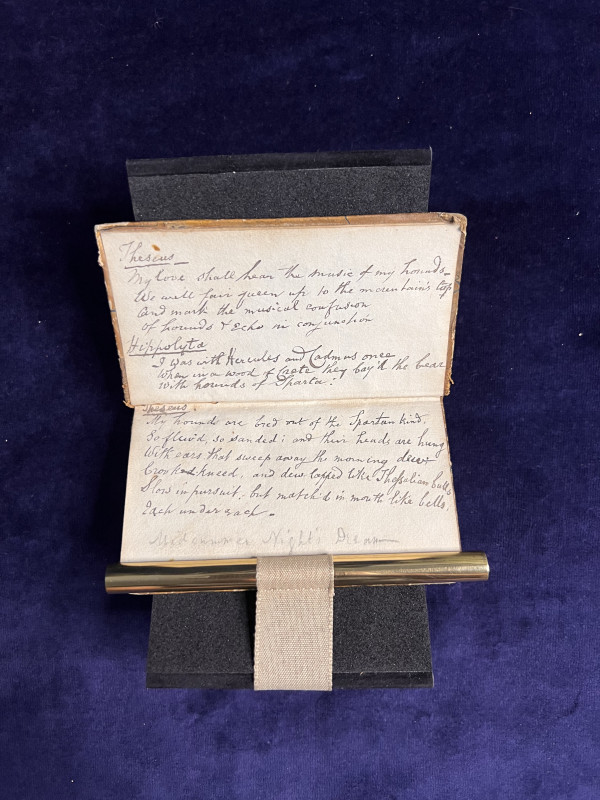 Theseus
My love shall hear the music of my hounds
We will fair queen up to the mountain's top
And mark the musical confusion
of hounds & Echo in conjunction
Hippolyta
I was with Hercules and Cadmus once
When in a wood of Crete they bay'd the bear
With hounds of Sparta:
Theseus
My hounds are bred out of the Spartan kind.
So flew'd, so sanded; and their heads are hung
With ears that sweep away the morning dew
Crook kneed, and dew lapped like Thessalian bulls
Slow in pursuit, but match'd in mouth like bells
Each under each.
Midsummer Night's Dream